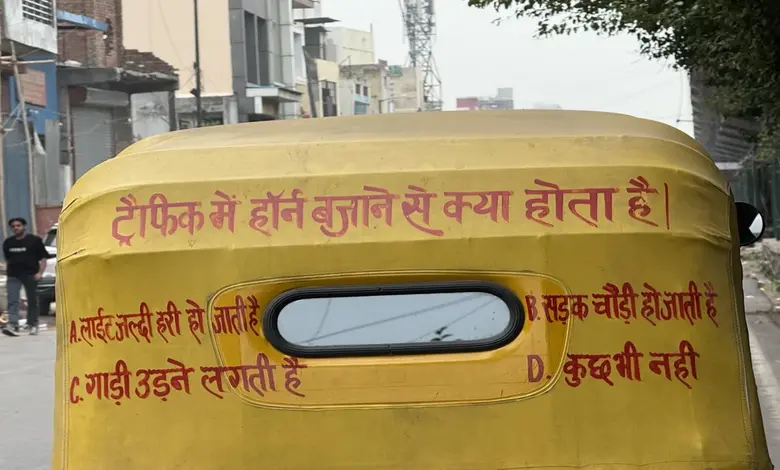 ट्रैफिक में हॉर्न बजाने से क्या होता है।
A. लाईट जल्दी हरी हो जाती है
B. सड़क चौड़ी हो जाती है
C. गाड़ी उड़ने लगती है
D. कुछ भी नही